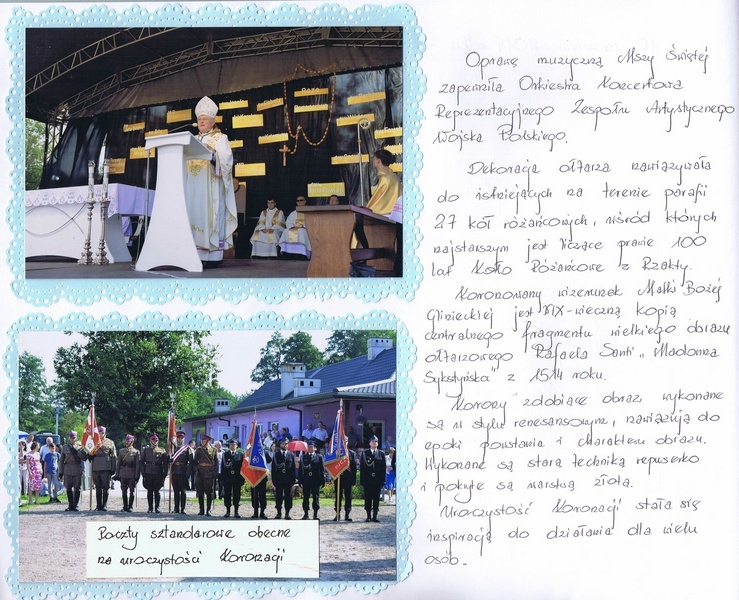 Oprawę muzyczną Mszy Świętej
zapewniła Orkiestra Koncertowa
Reprezentacyjnego Zespołu Artystycznego
Wojska Polskiego.
Dekoracja ołtarza nawiązywała
do istniejących na terenie parafii
27 kół różańcowych, wśród których
najstarszym jest liczące prawie 100
lat Koło Różańcowe z Rzakty.
Koronowany wizerunek Matki Bożej
Glinieckiej jest XIX-wieczną kopią
centralnego fragmentu wielkiego obrazu
ołtarzowego Rafaela Santi „Madonna
Sykstyńska" z 1514 roku.
Korony zdobiące obraz wykonane
są w stylu renesansowym, nawiązują do
epoki powstania i charakteru obrazu.
Wykonane są starą techniką repuserko
i pokryte są warstwą złota.
Uroczystość Koronacji stała się
inspiracją do działania dla wielu
osób.
Poczty sztandarowe obecne
na uroczystości Koronacji